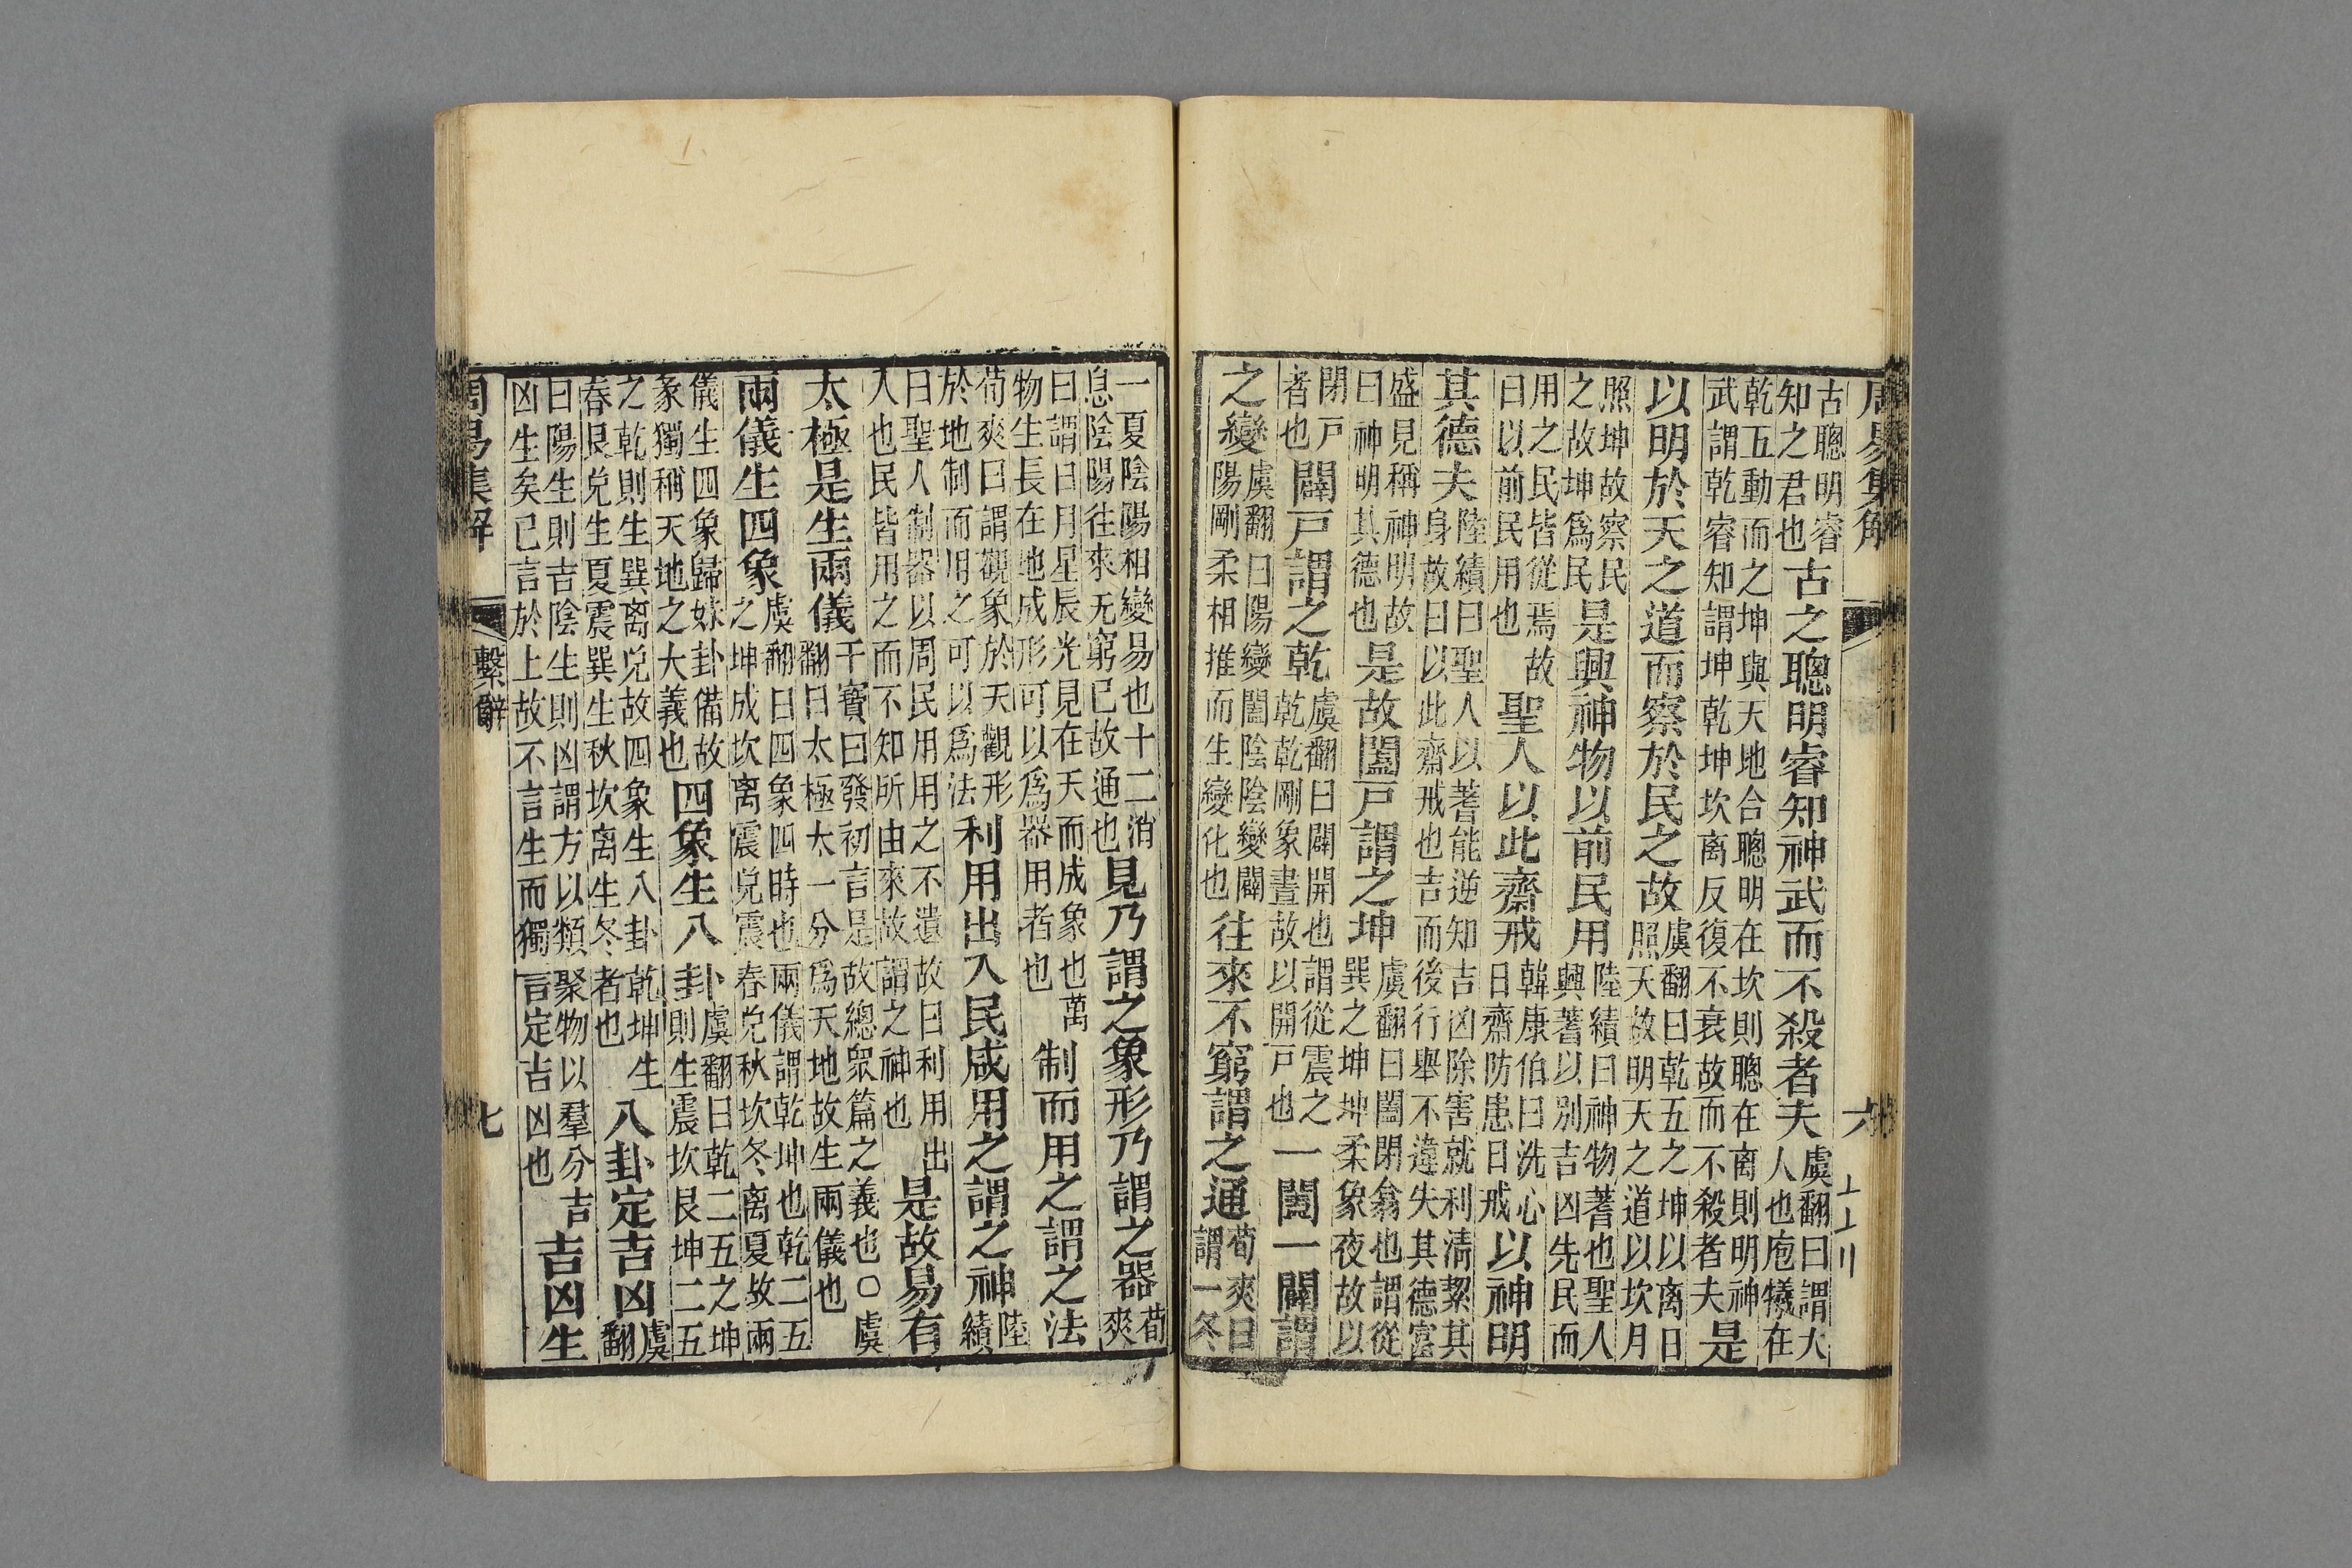 周易集解
六
古聰明睿知之君也古之聰明睿知神武而不殺者夫虞翻曰謂大人也庖犧在
乾五動而之坤與天地合聰明在坎則聰在離則明神武謂乾睿知謂坤乾坤坎离反復不衰故而不殺者夫是
以明於天之道而察於民之故虞翻曰乾五之坤以离日照天故明天之道以坎月
照坤故察民之故坤爲民是興神物以前民用陸績曰神物蓍也聖人興蓍以別吉凶先民而
用之民皆從焉故曰以前民用也聖人以此齋戒韓康伯曰洗心曰齋防患曰戒以神明
其德夫陸績曰聖人以蓍能逆知吉凶除害就利清絜其身故曰以此齋戒也吉而後行舉不違失其德富
盛見稱神明故曰神明其德也是故闔戸謂之坤虞翻曰闔閉翕也謂從巽之坤坤柔象夜故以
閉戸者也闢戸謂之乾虞翻曰闢開也謂從震之乾乾剛象晝故以開戸也一闔一闢謂
之變虞翻曰陽變闔陰陰變闢陽剛柔相推而生變化也往來不窮謂之通荀爽曰謂一冬
一夏陰陽相變易也十二消息陰陽往來无窮已故通也見乃謂之象形乃謂之器荀爽
曰謂日月星辰光見在天而成象也萬物生長在地成形可以爲器用者也制而用之謂之法
荀爽曰謂觀象於天觀形於地制而用之可以爲法利用出入民咸用之謂之神陸績
曰聖人制器以周民用用之不遺故曰利用出入也民皆用之而不知所由來故謂之神也是故易有
太極是生兩儀干寶曰發初言是故總衆篇之義也○虞翻曰太極太一分爲天地故生兩儀也
兩儀生四象虞翻曰四象四時也兩儀謂乾坤也乾二五之坤成坎离震兌震春兌秋坎冬离夏故兩
儀生四象歸妹卦備故彖獨稱天地之大義也四象生八卦虞翻曰乾二五之坤則生震坎艮坤二五
之乾則生巽离兌故四象生八卦乾坤生春艮兌生夏震巽生秋坎离生冬者也八卦定吉凶虞翻
曰陽生則吉陰生則凶謂方以類聚物以羣分吉凶生矣已言於上故不言生而獨言定吉凶也吉凶生
周易集解
繫辭
七